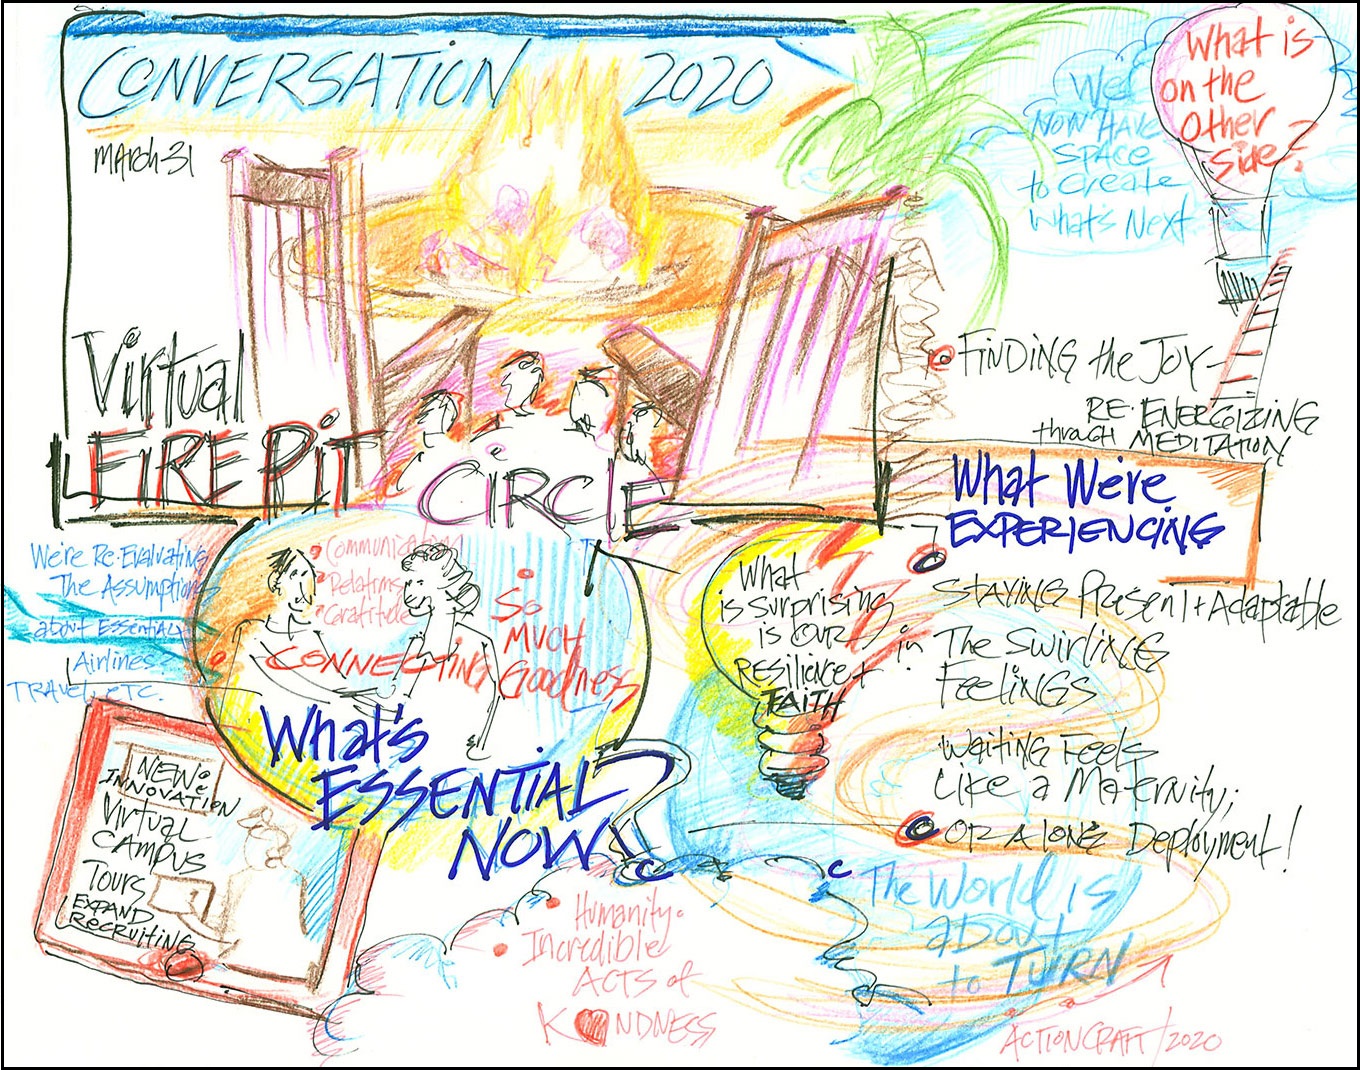 CONVERSATION 2020
March 31
Virtual
FIRE PIT
CIRCLE
What is
on the
Other
side?
We
Now Have
SPACE
to create
What's Next
FINDING the JOY-
RE-ENERGIZING
through MEDITATION
What We're
EXPERIENCING
STAYING Present + Adaptable
in The Swirling
Feelings
Waiting Feels
Like a Maternity;
or a long Deployment!
What
is surprising
is our
RESILIENCE +
FAITH
We're Re-Evaluating
The Assumptions
about Essential
Airlines?
TRAVEL, etc.
Communication
Relations
Gratitude
CONNECTING
So
MUCH
Goodness
What's
ESSENTIAL
NOW?
NEW:
INNOVATION
Virtual
CAMPUS
Tours
EXPAND
RECRUITING
Humanity.
Incredible
ACTS of
KINDNESS
The World is
about
to TURN
ACTIONCRAFT/2020